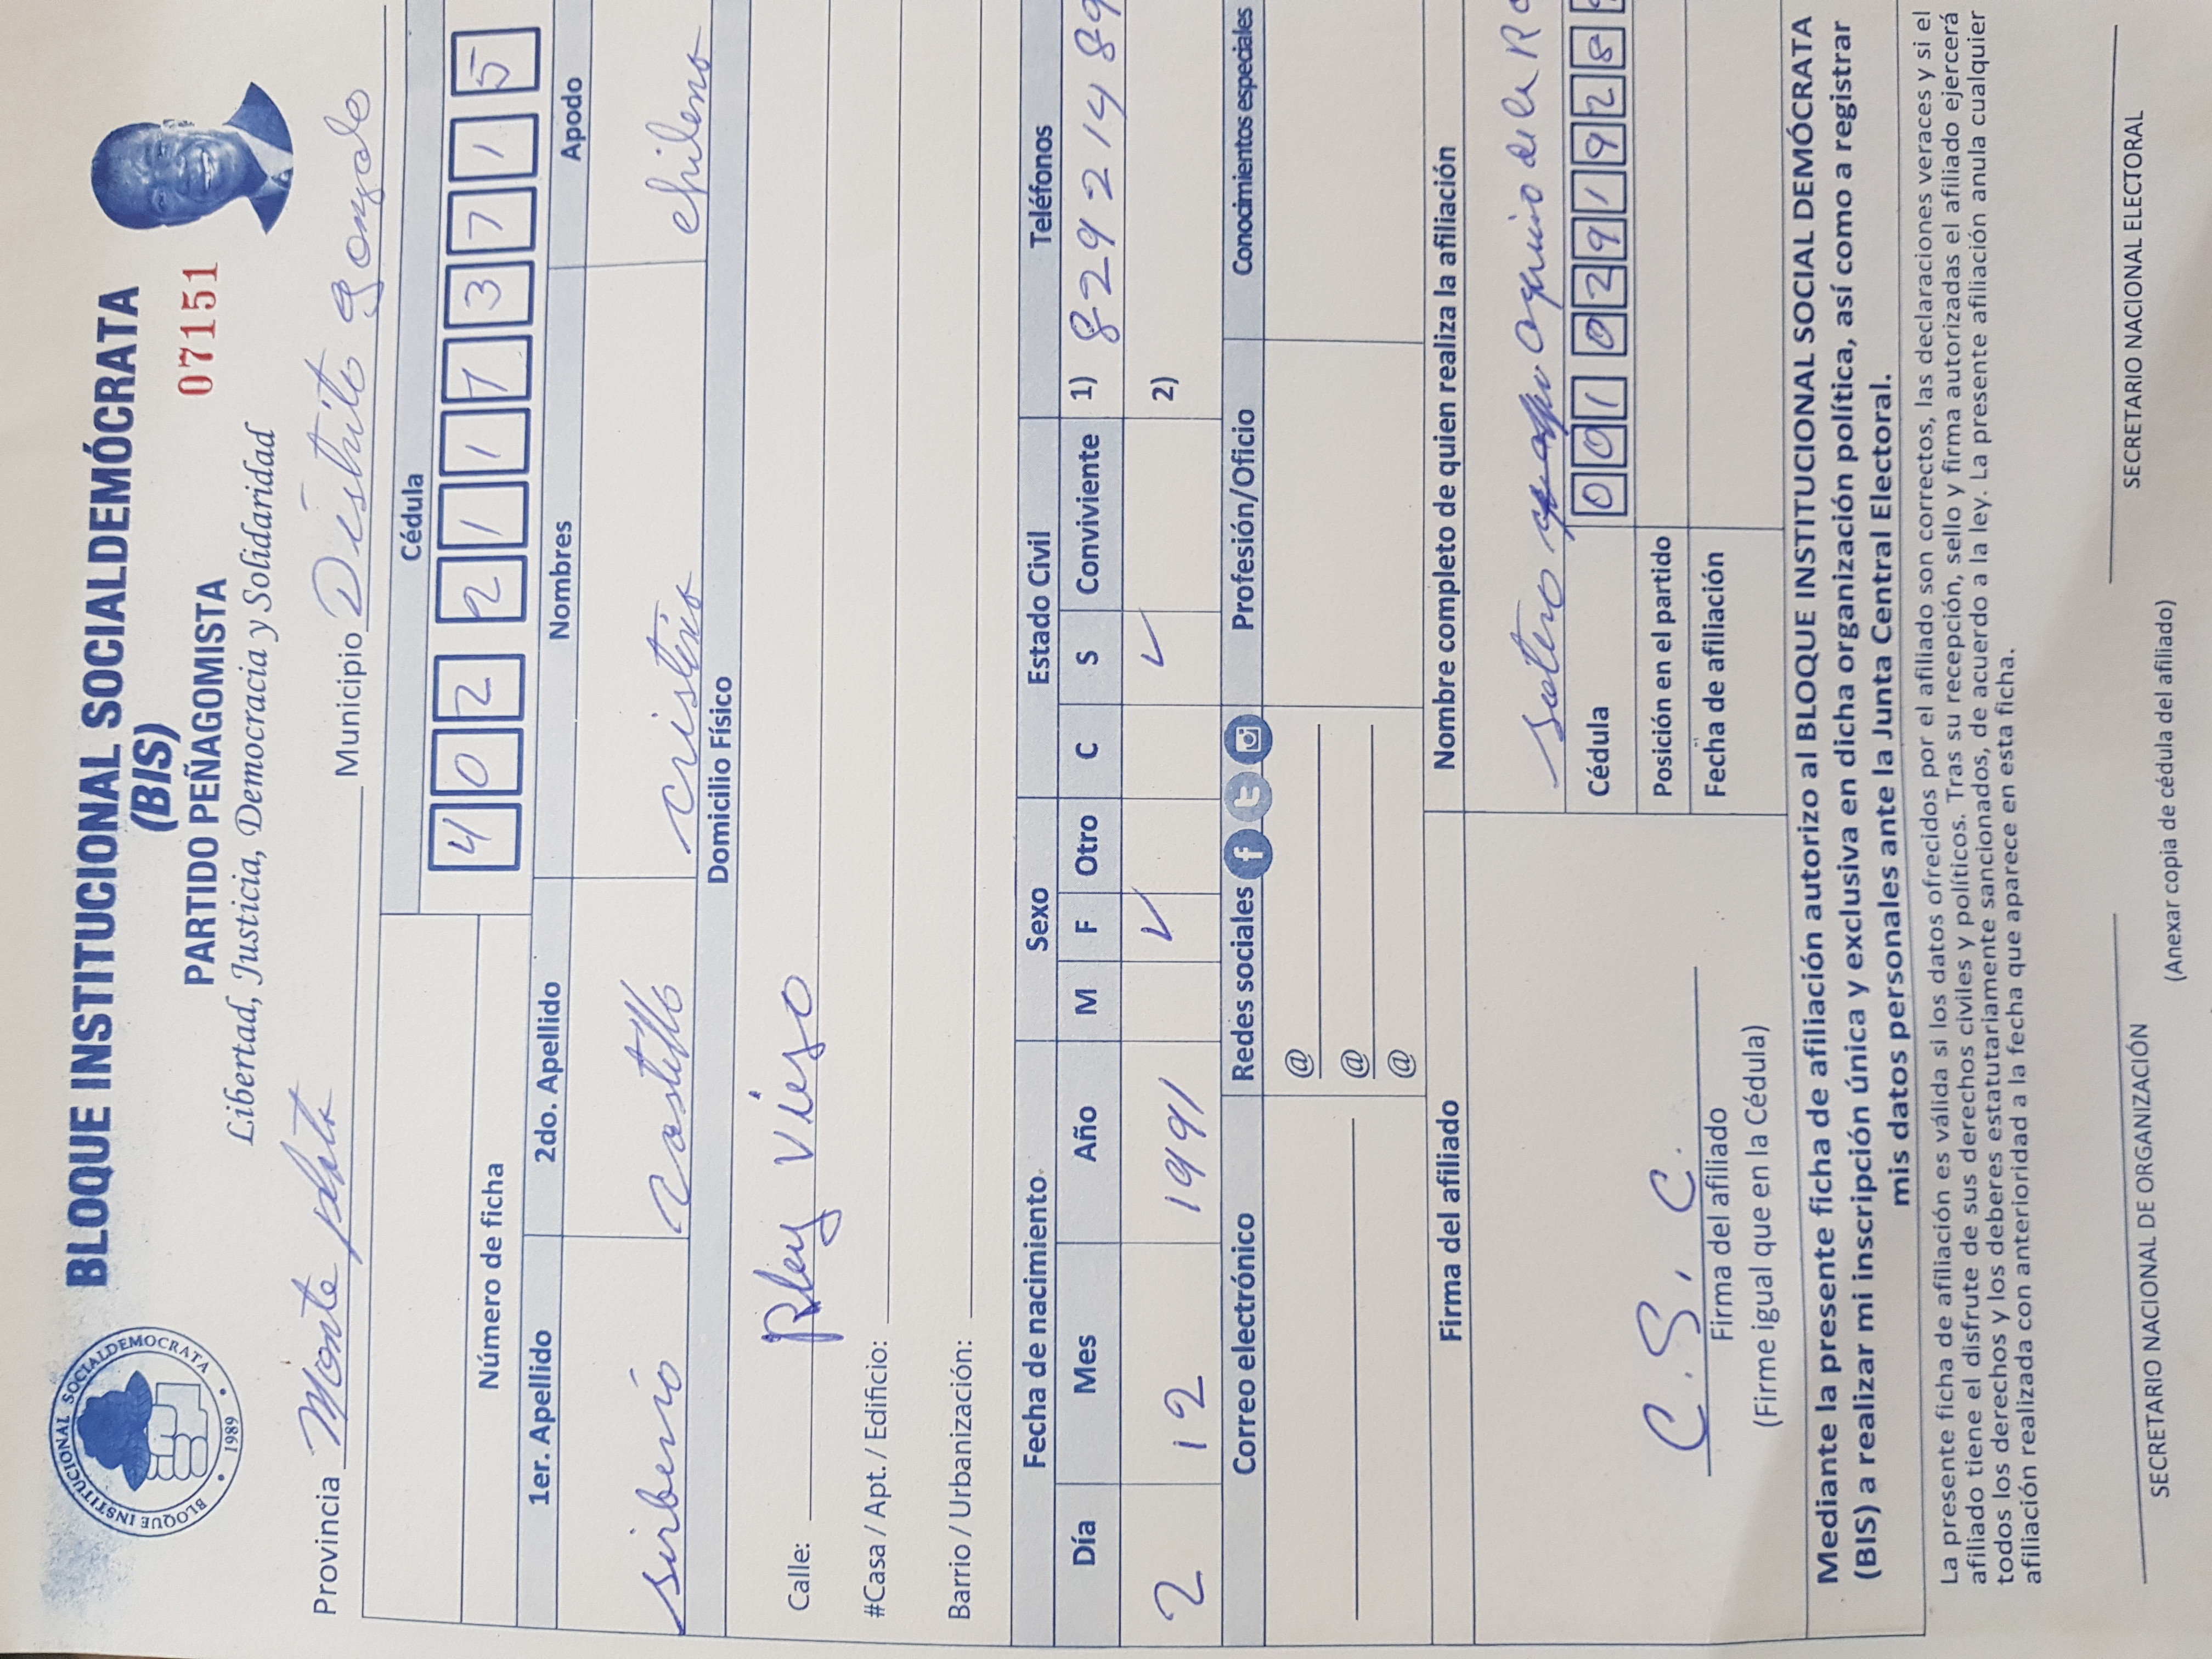 BLOQUE INSTITUCIONAL SOCIALDEMÓCRATA
(BIS)
PARTIDO PEÑAGOMISTA
07151
Libertad, Justicia, Democracia y Solidaridad
BLOQUE INSTITUCIONAL SOCIALDEMOCRATA
1989
Provincia Monte plata Municipio Distrito gonzalo
Cédula
Número de ficha 4 0 2 2 1 1 7 3 7 1 5
1er. Apellido 2do. Apellido Nombres Apodo
sirberio Castillo cristino chileno
Domicilio Físico
Calle: Pley vieso
#Casa / Apt. / Edificio:
Barrio / Urbanización:
Fecha de nacimiento Sexo Estado Civil Teléfonos
Día Mes Año M F Otro C S Conviviente 1) 829 214 89
2 12 1991 ✓ ✓ 2)
Correo electrónico Redes sociales Profesión/Oficio Conocimientos especiales
@
@
@
Firma del afiliado Nombre completo de quien realiza la afiliación
sotero aquino de la Ro
Cédula 0 0 1 0 2 9 1 9 2 8
Posición en el partido
Fecha de afiliación
C. S. C.
Firma del afiliado
(Firme igual que en la Cédula)
Mediante la presente ficha de afiliación autorizo al BLOQUE INSTITUCIONAL SOCIAL DEMÓCRATA
(BIS) a realizar mi inscripción única y exclusiva en dicha organización política, así como a registrar
mis datos personales ante la Junta Central Electoral.
La presente ficha de afiliación es válida si los datos ofrecidos por el afiliado son correctos, las declaraciones veraces y si el
afiliado tiene el disfrute de sus derechos civiles y políticos. Tras su recepción, sello y firma autorizadas el afiliado ejercerá
todos los derechos y los deberes estatutariamente sancionados, de acuerdo a la ley. La presente afiliación anula cualquier
afiliación realizada con anterioridad a la fecha que aparece en esta ficha.
SECRETARIO NACIONAL DE ORGANIZACIÓN SECRETARIO NACIONAL ELECTORAL
(Anexar copia de cédula del afiliado)